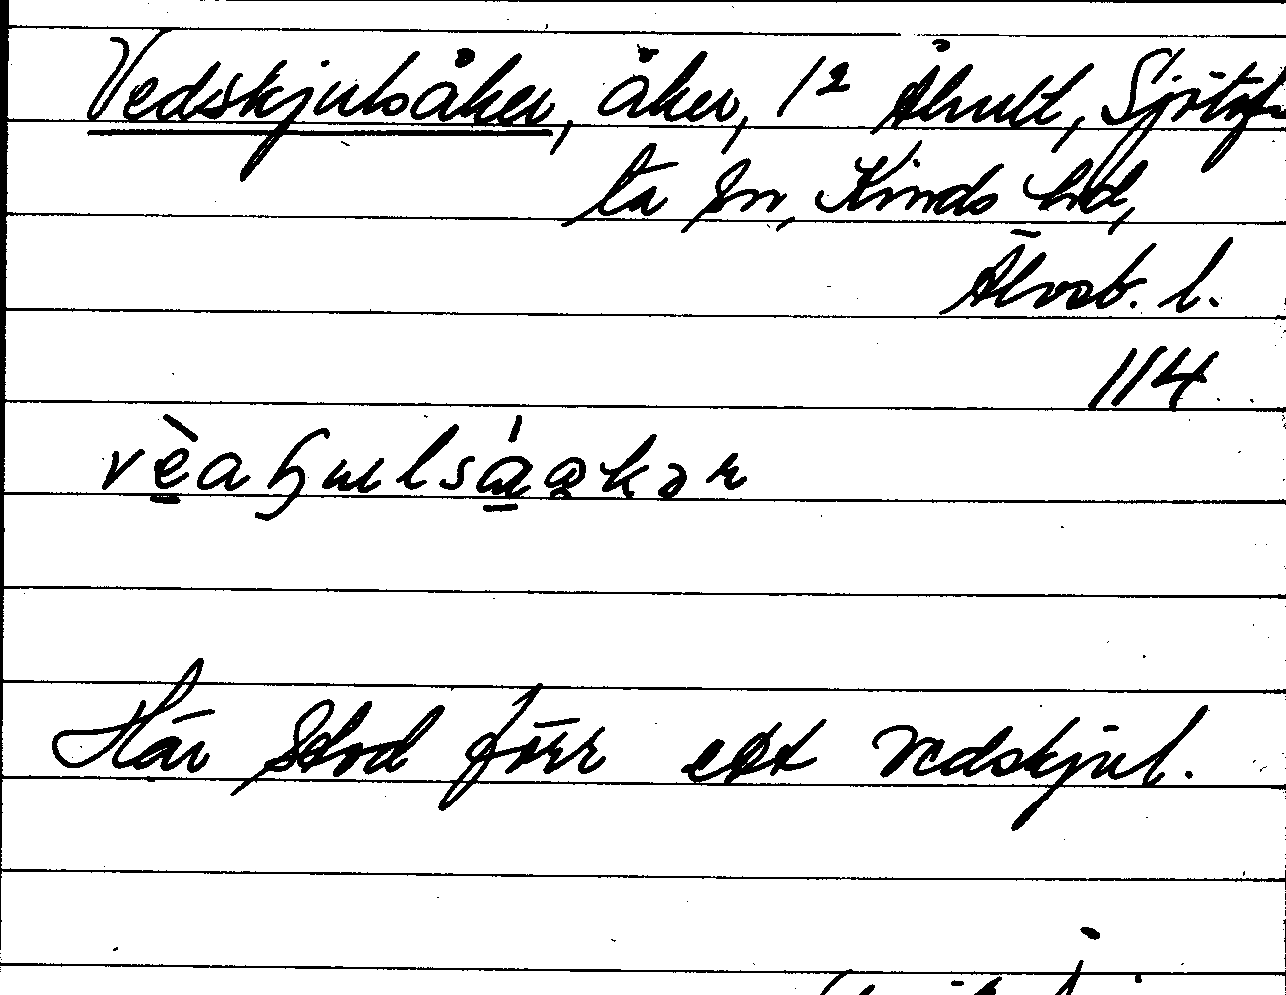 Vedskjulsåker, åker, 1² Älmult, Sjötof-
ta sn, Kinds hd,
Älvsb. l.
114
Här stod förr ett vedskjul.